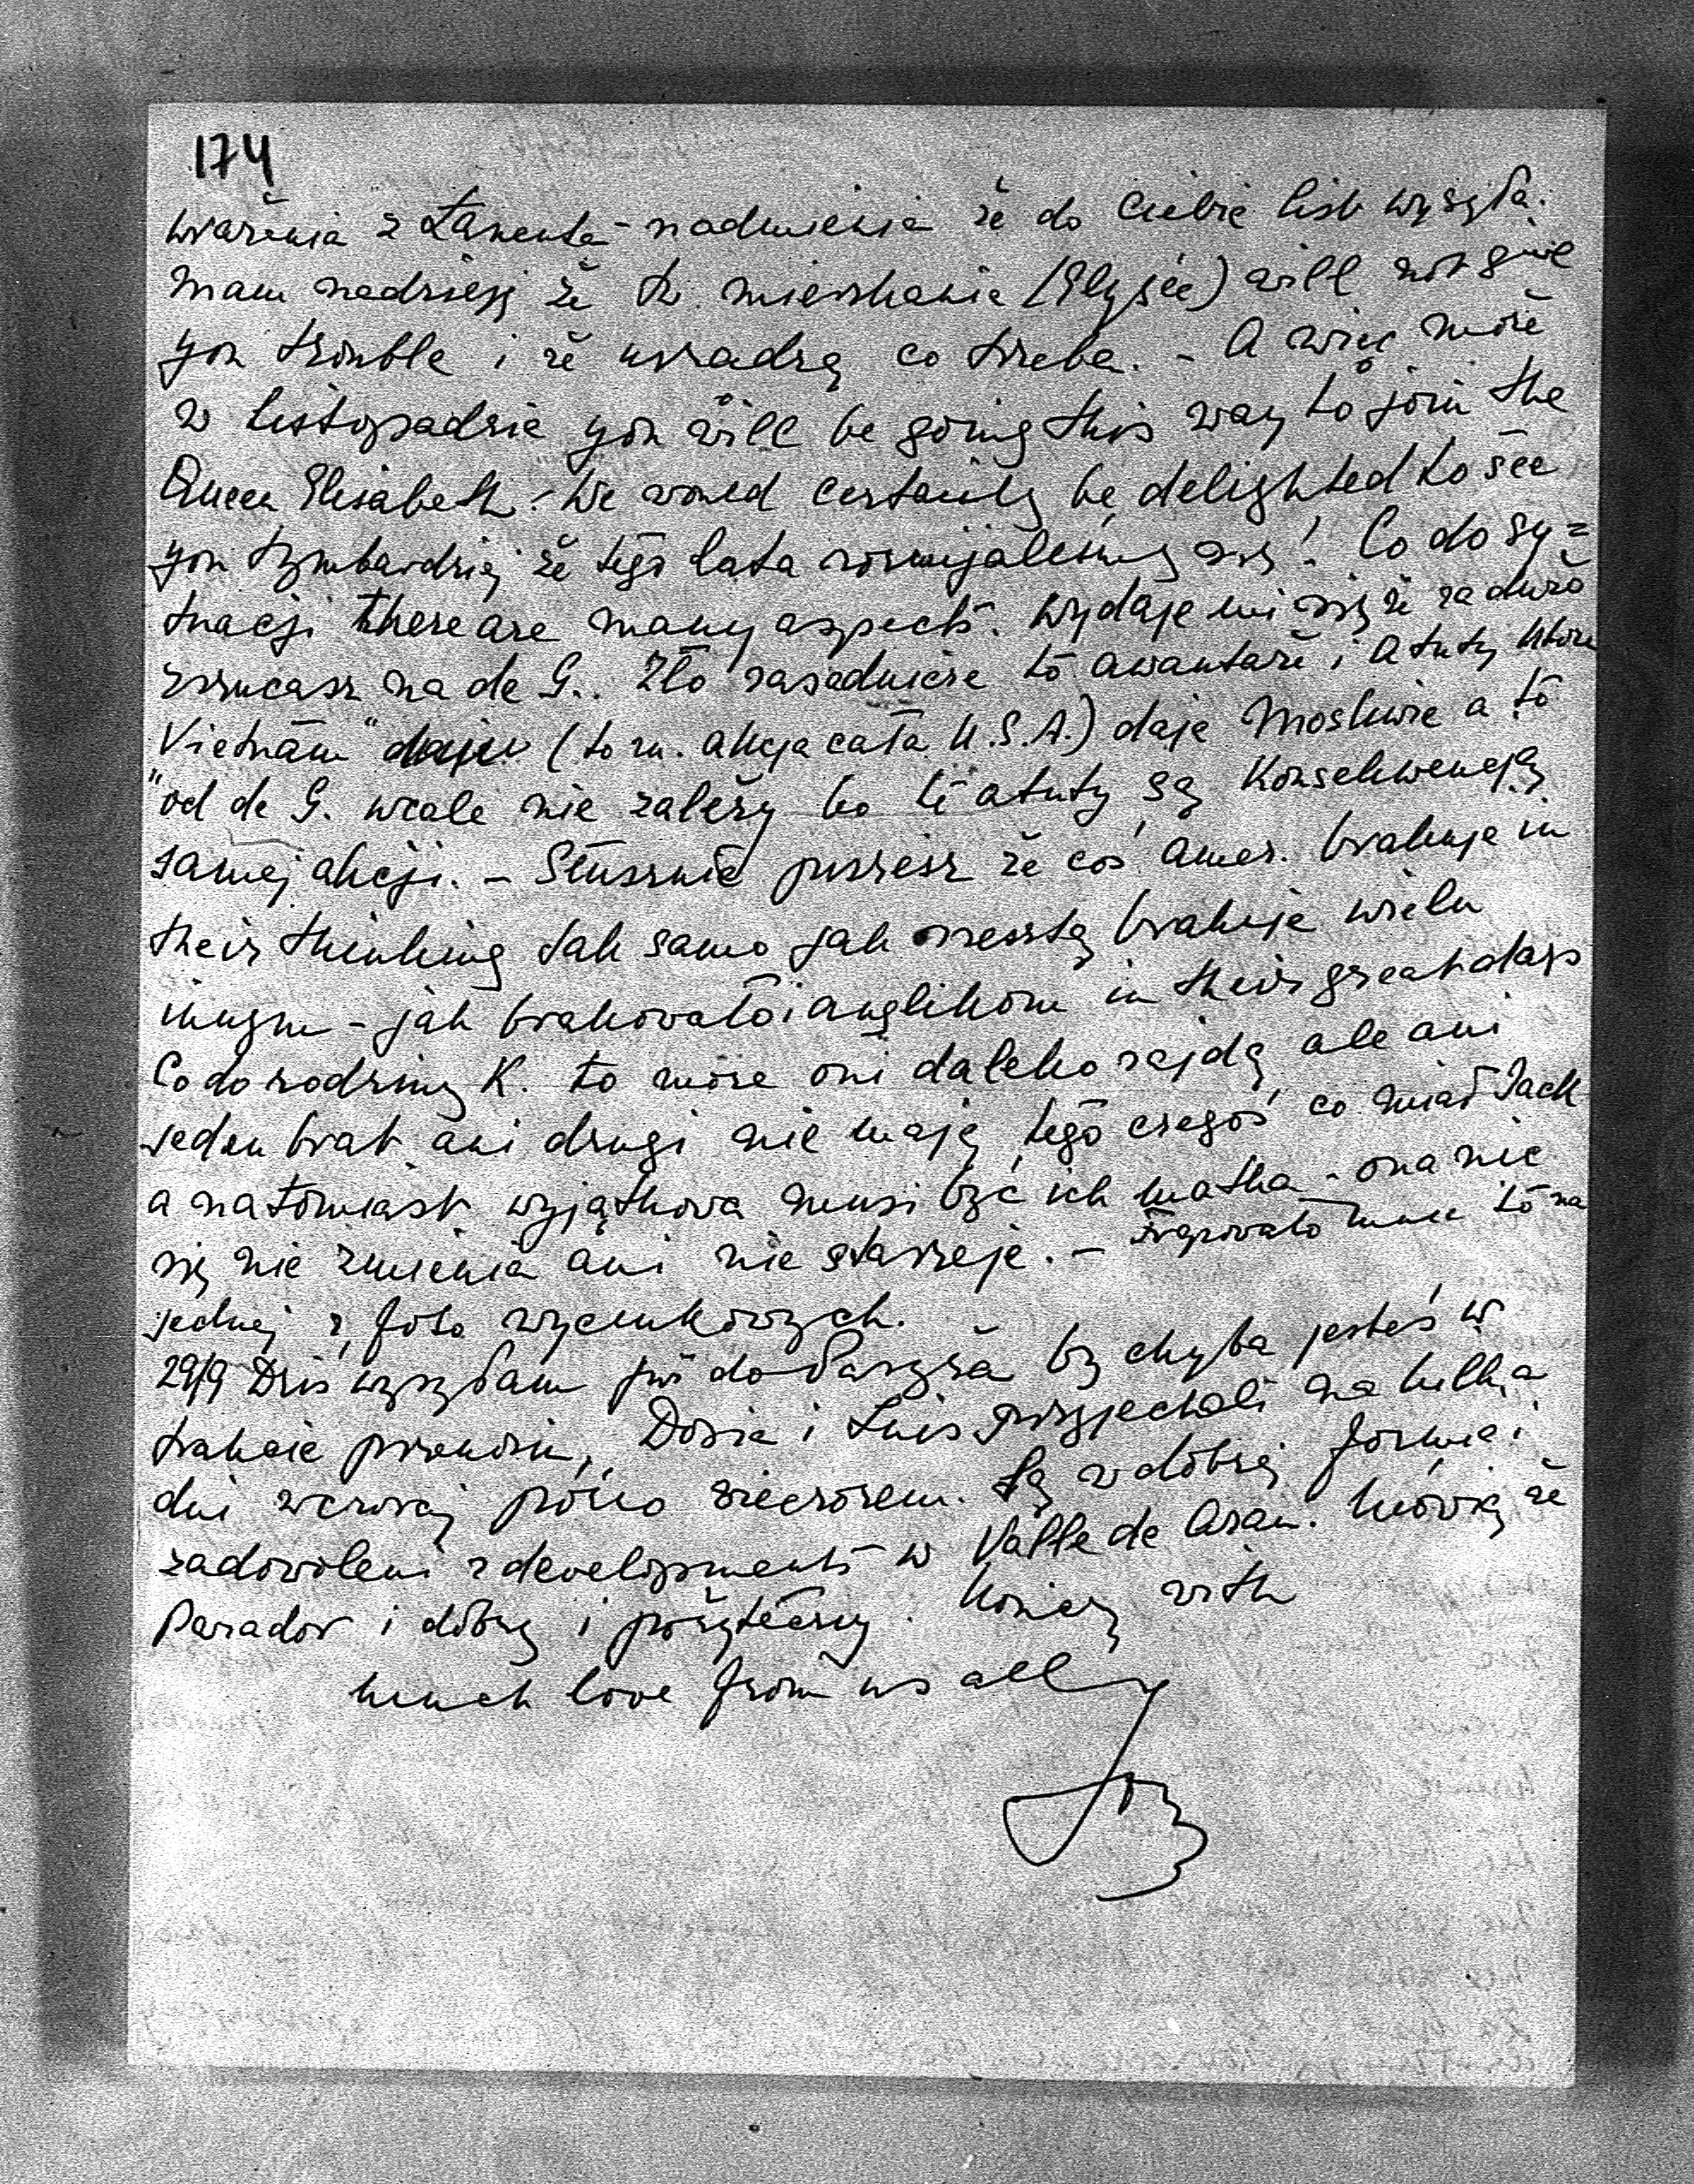 174
wrażenia z Łańcuta - nadmienia że do Ciebie list wysyła.
Mam nadzieję że to mieszkanie (Elysée) will not give
you trouble i że usradzą co trzeba. - A więc może
w listopadzie you will be going this way to join the
Queen Elisabeth. - We would certainly be delighted to see
you tymbardziej że tego lata rozmijaliśmy się! Co do sy=
tuacji there are many aspects. Wydaje mi się że za dużo
zrzucasz na de G.. Zło zasadnicze to awantaże i atuty które
Vietnam" (to zn. akcja cała U.S.A.) daje Moskwie a to
"od de G. wcale nie zależy bo te atuty są konsekwencją
samej akcji. - Słusznie piszesz że coś amer. brakuje in
their thinking tak samo jak zresztą brakuje wielu
innym - jak brakowało i anglikom in their great days
Co do rodziny K. to może oni daleko zajdą ale ani
jeden brat ani drugi nie mają tego czegoś co miał Jack
a natomiast wyjątkowa musi być ich matka - ona nic
się nie zmienia ani nie starzeje. - frapowało mnie to na
jednej z foto wycinkowych.
29/9 Dziś wysyłam już do Paryża by chyba jesteś w
trakcie przenosin, Dosia i Luis przyjechali na kilka
dni wczoraj późno wieczorem. Są w dobrej formie i
zadowoleni z developments w Valle de Aran. Mówią że
Parador i dobry i pożyteczny. Kończę with
much love from us all